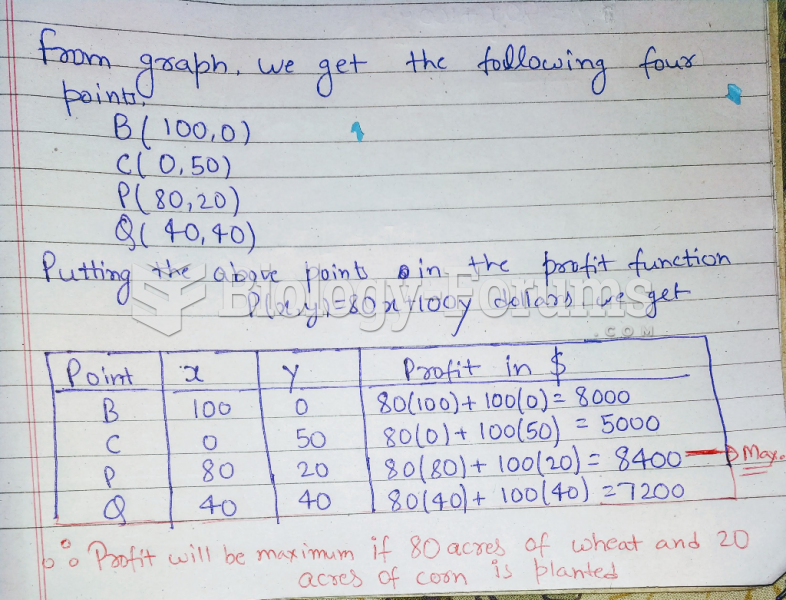 From graph, we get the following four
points.
B( 100,0)
C( 0,50)
P( 80,20)
Q( 40,40)
Putting the above point in the profit function
P(x,y)=80x+100y dollars we get
Biology-Forums
.COM
Point x y Profit in $
B 100 0 80(100)+100(0)= 8000
C 0 50 80(0)+ 100(50) = 5000
P 80 20 80(80)+ 100(20) = 8400 → Max.
Q 40 40 80(40)+ 100(40) =7200
∴ Profit will be maximum if 80 acres of wheat and 20
acres of corn is planted